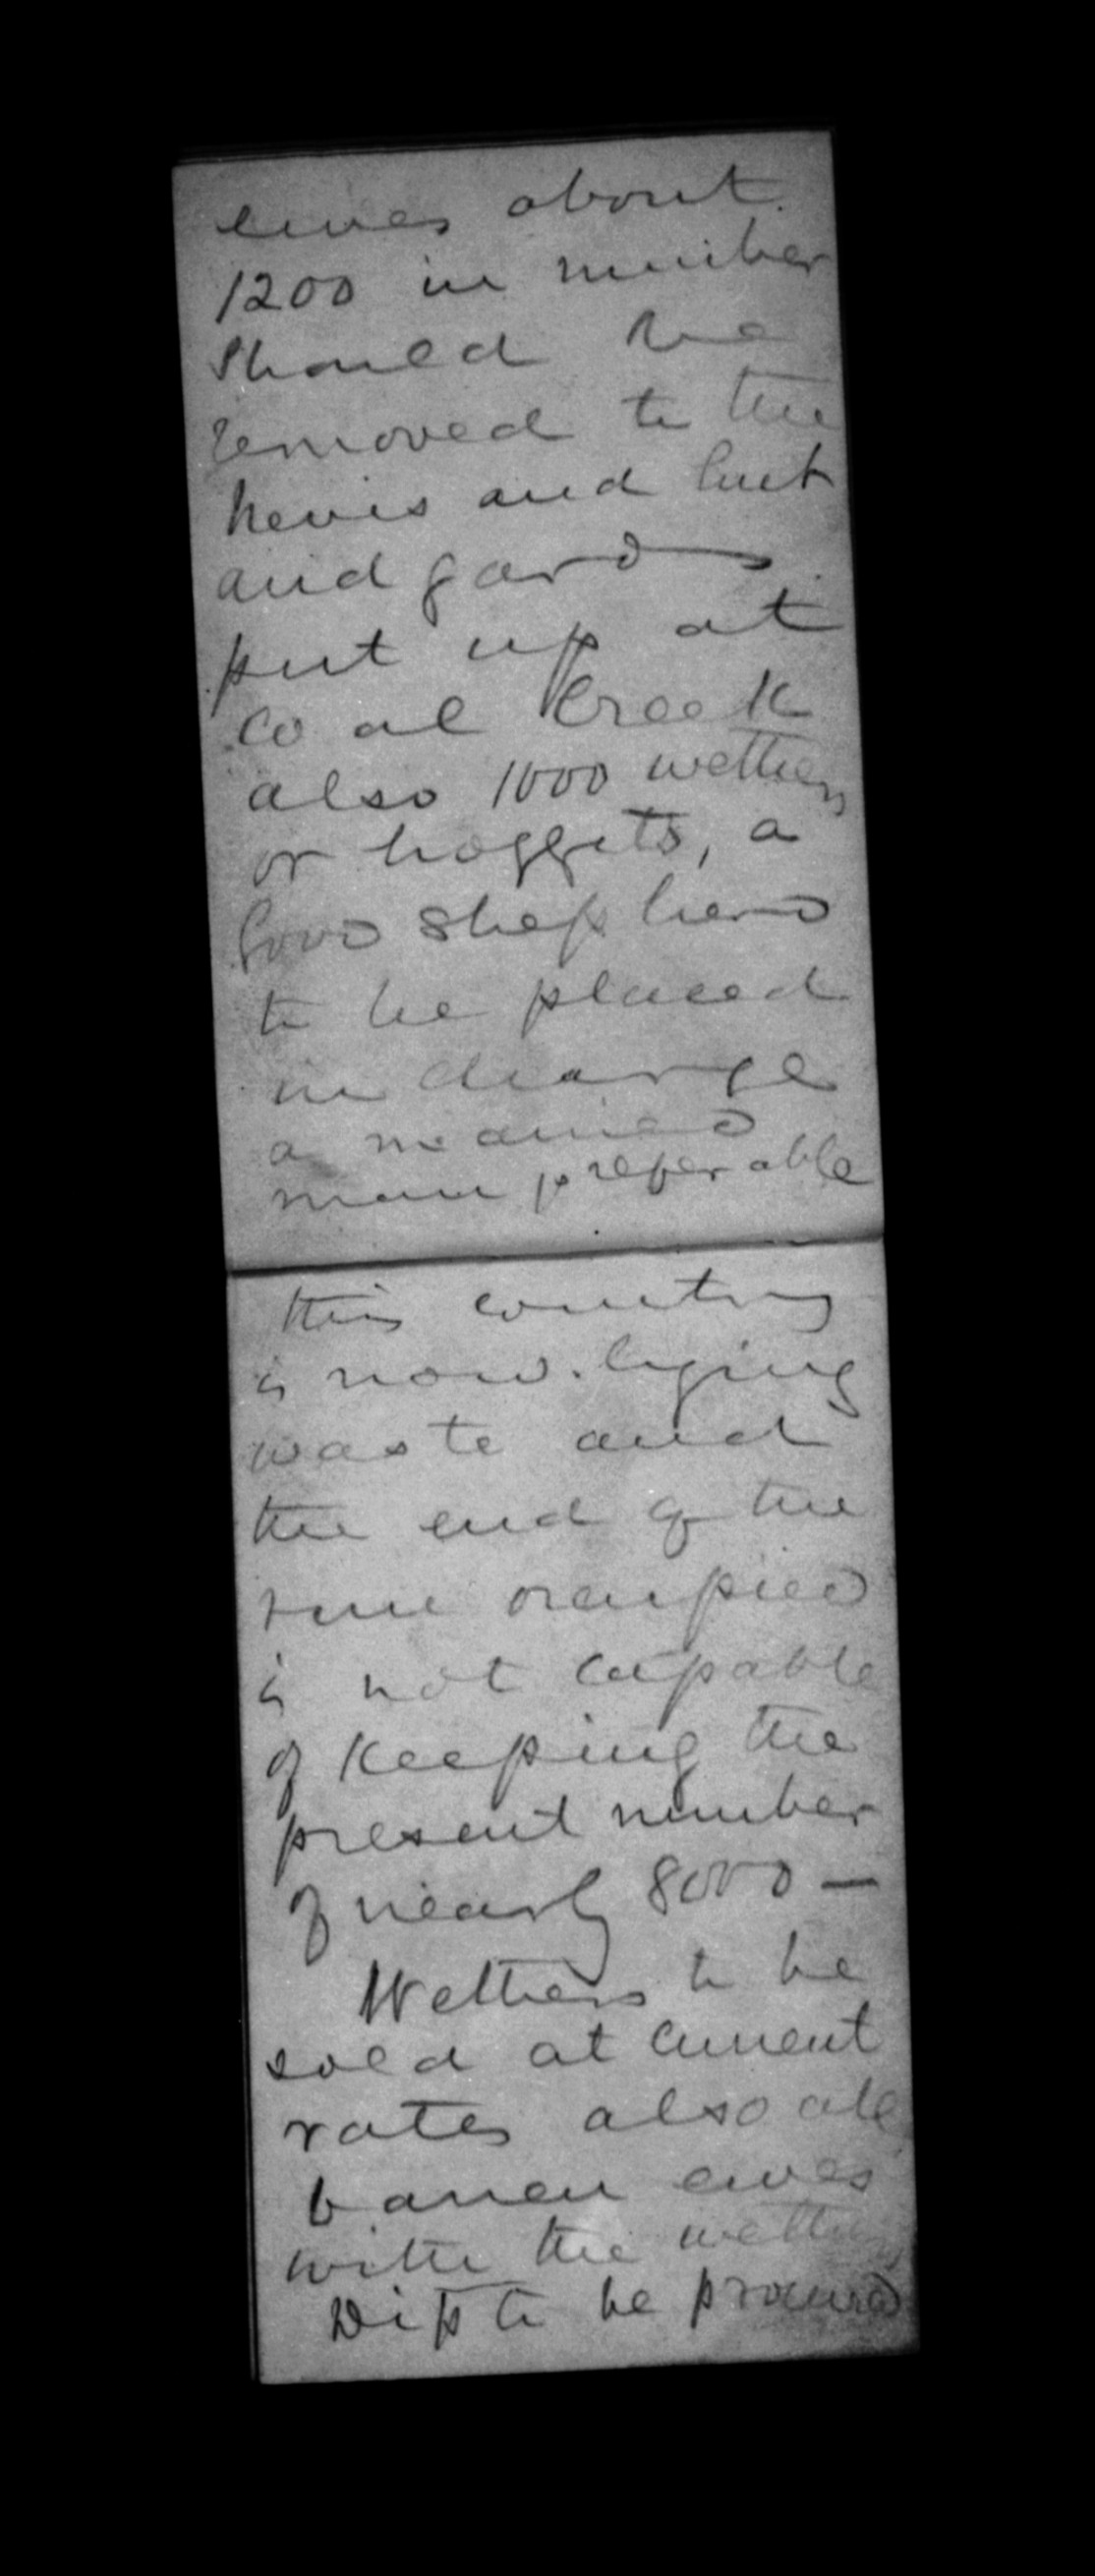 ewes about
1200 in number
should be
removed to the
Nevis and hut
and yards
put up at
Coal Creek
also 1000 wethers
or hoggets, a
Good Shepherd
to be placed
in charge
a married
man preferable
this country
is now lying
waste and
the end of the
run occupied
is not capable
of Keeping the
present number
of nearly 8000 —
Wethers to be
sold at current
rates also all
barren ewes
with the wethers
Dip to be procured